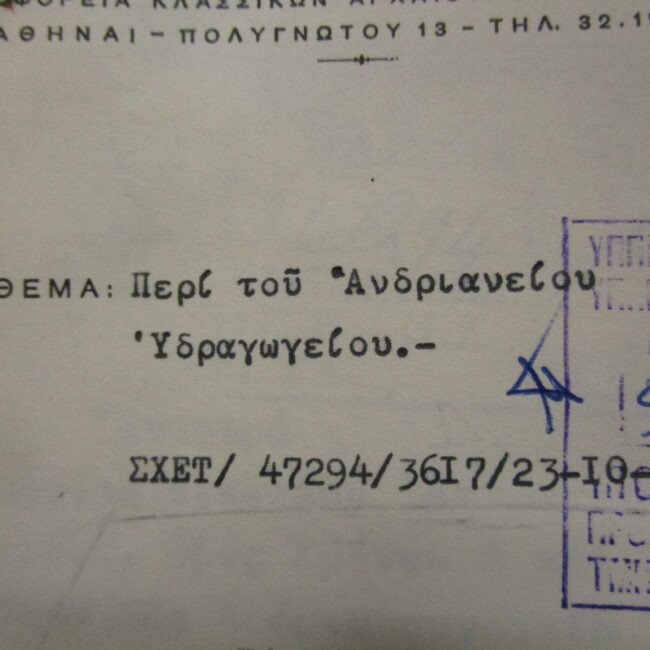 ΕΦΟΡΕΙΑ ΚΛΑΣΣΙΚΩΝ
ΑΘΗΝΑΙ – ΠΟΛΥΓΝΩΤΟΥ 13 – ΤΗΛ. 32.1
ΘΕΜΑ: Περί τοῦ Ἀνδριανείου
Ὑδραγωγείου.-
ΣΧΕΤ/ 47294/36Ι7/23-Ι0-